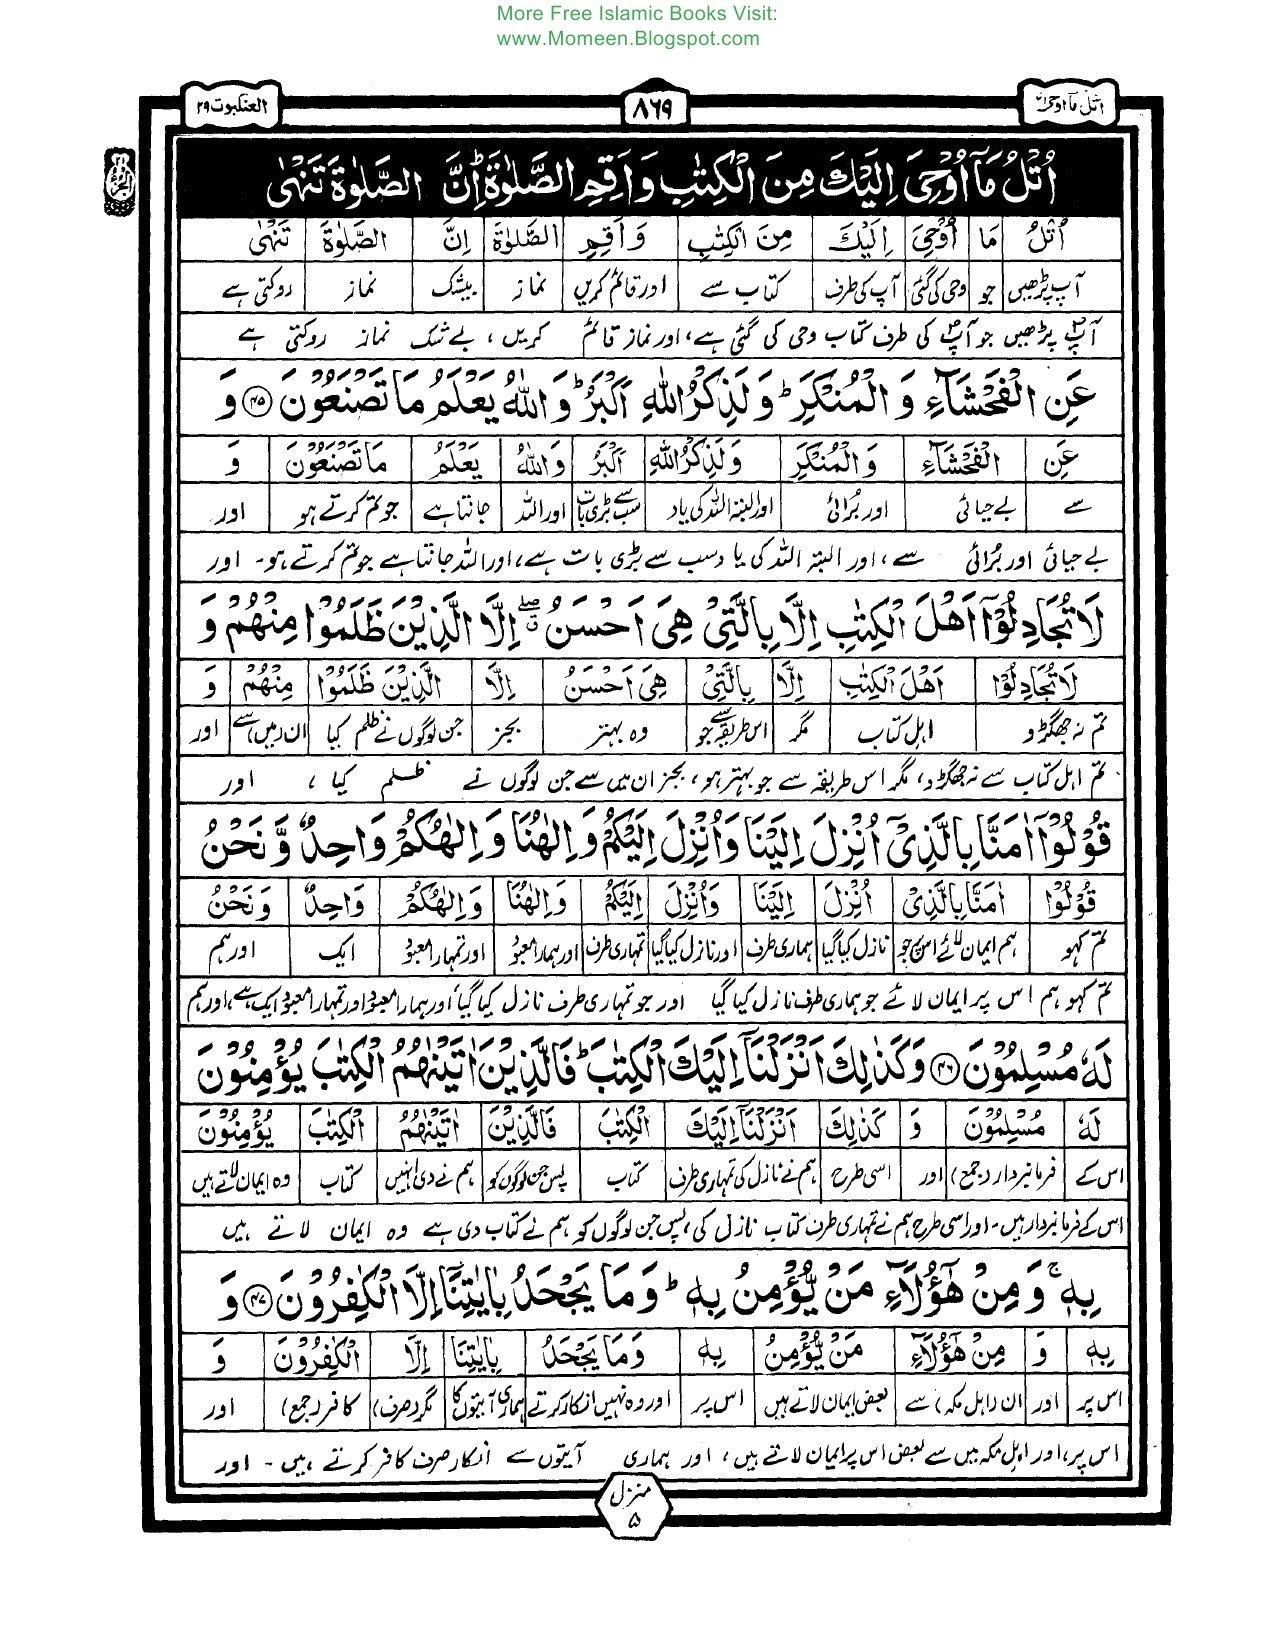 More Free Islamic Books Visit:
www.Momeen.Blogspot.com
اتل مآ اوحی ۲۱ ۸۶۹ العنکبوت ۲۹
اُتْلُ مَاۤ اُوْحِیَ اِلَیْكَ مِنَ الْكِتٰبِ وَ اَقِمِ الصَّلٰوةَ ؕ اِنَّ الصَّلٰوةَ تَنْهٰى
اُتْلُ مَا اُوْحِیَ اِلَیْكَ مِنَ الْكِتٰبِ وَ اَقِمِ الصَّلٰوةَ اِنَّ الصَّلٰوةَ تَنْهٰى
آپ پڑھیں جو وحی کی گئی آپ کی طرف کتاب سے اور قائم کریں نماز بیشک نماز روکتی ہے
آپؐ پڑھیں جو آپؐ کی طرف کتاب وحی کی گئی ہے، اور نماز قائم کریں، بے شک نماز روکتی ہے
عَنِ الْفَحْشَآءِ وَ الْمُنْكَرِ ؕ وَ لَذِكْرُ اللّٰهِ اَكْبَرُ ؕ وَ اللّٰهُ یَعْلَمُ مَا تَصْنَعُوْنَ ﴿۴۵﴾ وَ
عَنِ الْفَحْشَآءِ وَ الْمُنْكَرِ وَ لَذِكْرُ اللّٰهِ اَكْبَرُ وَ اللّٰهُ یَعْلَمُ مَا تَصْنَعُوْنَ وَ
سے بے حیائی اور برُائی اور البتہ اللہ کی یاد سب سے بڑی بات اور اللہ جانتا ہے جو تم کرتے ہو اور
بے حیائی اور برُائی سے، اور البتہ اللہ کی یاد سب سے بڑی بات ہے، اور اللہ جانتا ہے جو تم کرتے ہو۔ اور
لَا تُجَادِلُوْۤا اَهْلَ الْكِتٰبِ اِلَّا بِالَّتِیْ هِیَ اَحْسَنُ ۖۗ اِلَّا الَّذِیْنَ ظَلَمُوْا مِنْهُمْ وَ
لَا تُجَادِلُوْۤا اَهْلَ الْكِتٰبِ اِلَّا بِالَّتِیْ هِیَ اَحْسَنُ اِلَّا الَّذِیْنَ ظَلَمُوْا مِنْهُمْ وَ
تم نہ جھگڑو اہلِ کتاب مگر اس طریقہ سے جو وہ بہتر بجز جن لوگوں نے ظلم کیا ان میں سے اور
تم اہل کتاب سے نہ جھگڑو، مگر اس طریقہ سے جو بہتر ہو، بجز ان میں سے جن لوگوں نے ظلم کیا، اور
قُوْلُوْۤا اٰمَنَّا بِالَّذِیْۤ اُنْزِلَ اِلَیْنَا وَ اُنْزِلَ اِلَیْكُمْ وَ اِلٰهُنَا وَ اِلٰهُكُمْ وَاحِدٌ وَّ نَحْنُ
قُوْلُوْۤا اٰمَنَّا بِالَّذِیْ اُنْزِلَ اِلَیْنَا وَ اُنْزِلَ اِلَیْكُمْ وَ اِلٰهُنَا وَ اِلٰهُكُمْ وَاحِدٌ وَ نَحْنُ
تم کہو ہم ایمان لائے اس پر جو نازل کیا گیا ہماری طرف اور نازل کیا گیا تمہاری طرف اور ہمارا معبود اور تمہارا معبود ایک اور ہم
تم کہو ہم اس پر ایمان لائے جو ہماری طرف نازل کیا گیا اور جو تمہاری طرف نازل کیا گیا، اور ہمارا معبود اور تمہارا معبود ایک ہے، اور ہم
لَهٗ مُسْلِمُوْنَ ﴿۴۶﴾ وَ كَذٰلِكَ اَنْزَلْنَاۤ اِلَیْكَ الْكِتٰبَ ؕ فَالَّذِیْنَ اٰتَیْنٰهُمُ الْكِتٰبَ یُؤْمِنُوْنَ
لَهٗ مُسْلِمُوْنَ وَ كَذٰلِكَ اَنْزَلْنَاۤ اِلَیْكَ الْكِتٰبَ فَالَّذِیْنَ اٰتَیْنٰهُمُ الْكِتٰبَ یُؤْمِنُوْنَ
اس کے فرمانبردار (جمع) اور اسی طرح ہم نے نازل کی تمہاری طرف کتاب پس جن لوگوں کو ہم نے دی انہیں کتاب وہ ایمان لاتے ہیں
اس کے فرمانبردار ہیں۔ اور اسی طرح ہم نے تمہاری طرف کتاب نازل کی، پس جن لوگوں کو ہم نے کتاب دی ہے وہ ایمان لاتے ہیں
بِهٖ ۚ وَ مِنْ هٰۤؤُلَآءِ مَنْ یُّؤْمِنُ بِهٖ ؕ وَ مَا یَجْحَدُ بِاٰیٰتِنَاۤ اِلَّا الْكٰفِرُوْنَ ﴿۴۷﴾ وَ
بِهٖ وَ مِنْ هٰۤؤُلَآءِ مَنْ یُّؤْمِنُ بِهٖ وَ مَا یَجْحَدُ بِاٰیٰتِنَا اِلَّا الْكٰفِرُوْنَ وَ
اس پر اور ان (اہل مکہ) سے بعض ایمان لاتے ہیں اس پر اور وہ نہیں انکار کرتے ہماری آیتوں کا مگر (صرف) کافر (جمع) اور
اس پر، اور اہلِ مکہ میں سے بعض اس پر ایمان لاتے ہیں، اور ہماری آیتوں سے انکار صرف کافر کرتے ہیں۔ اور
منزل
۵